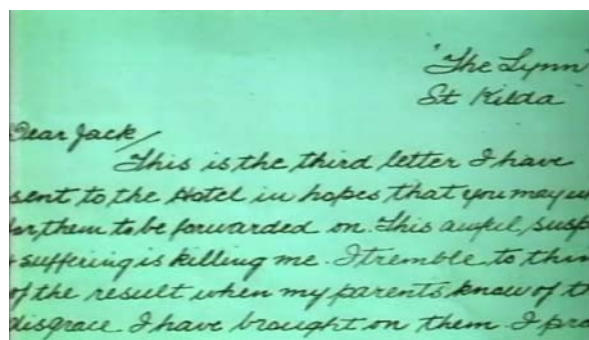 "The Lynn"
St Kilda
Dear Jack/
This is the third letter I have
sent to the Hotel in hopes that you may
for them to be forwarded on. This awful susp
& suffering is killing me. I tremble to thin
of the result when my parents know of t
disgrace I have brought on them. I pro